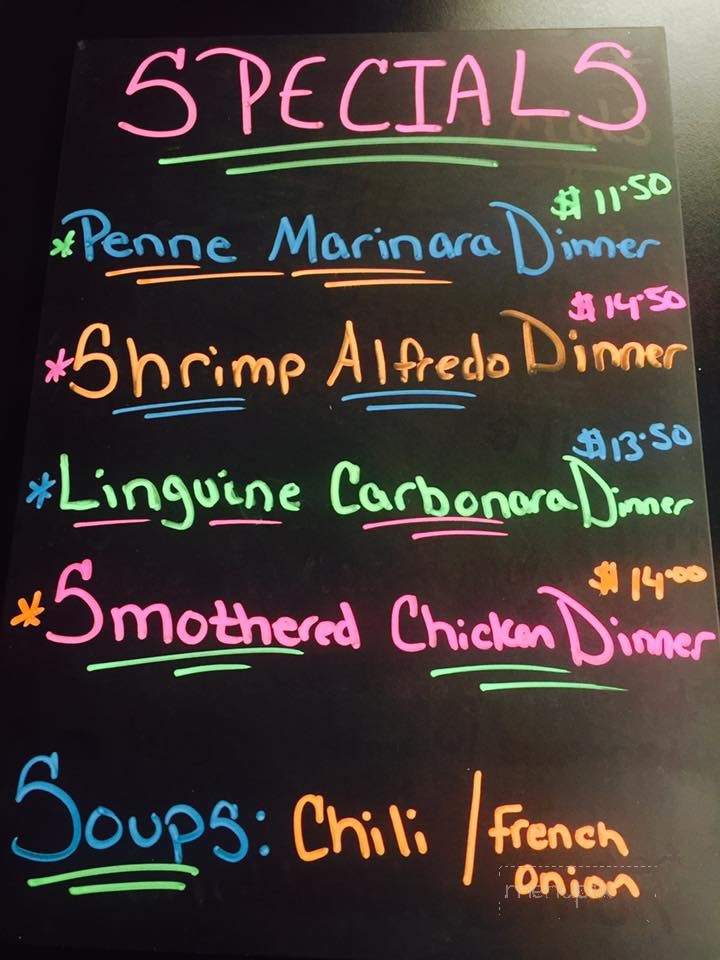 SPECIALS
$11.50
*Penne Marinara Dinner
$14.50
*Shrimp Alfredo Dinner
$13.50
*Linguine Carbonara Dinner
$14.00
*Smothered Chicken Dinner
Soups: Chili / french
onion